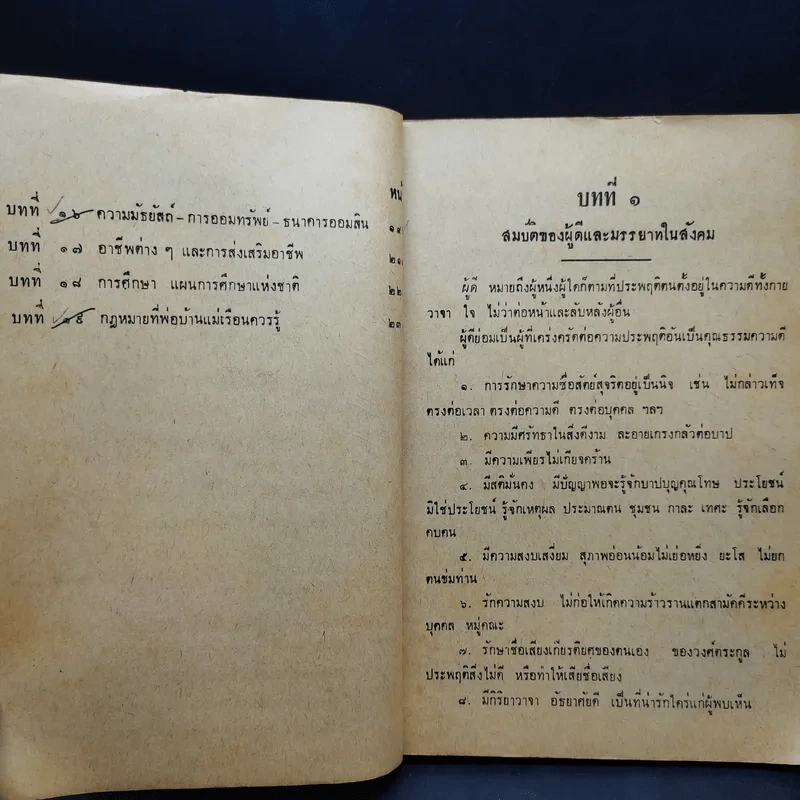 หน้
บทที่ ๑๖ ความมัธยัสถ์ – การออมทรัพย์ – ธนาคารออมสิน ๑๙
บทที่ ๑๗ อาชีพต่าง ๆ และการส่งเสริมอาชีพ ๒๑
บทที่ ๑๘ การศึกษา แผนการศึกษาแห่งชาติ ๒๒
บทที่ ๑๙ กฎหมายที่พ่อบ้านแม่เรือนควรรู้ ๒๓
บทที่ ๑
สมบัติของผู้ดีและมรรยาทในสังคม
ผู้ดี หมายถึงผู้หนึ่งผู้ใดก็ตามที่ประพฤติตนตั้งอยู่ในความดีทั้งกาย
วาจา ใจ ไม่ว่าต่อหน้าและลับหลังผู้อื่น
ผู้ดีย่อมเป็นผู้ที่เคร่งครัดต่อความประพฤติอันเป็นคุณธรรมความดี
ได้แก่
๑. การรักษาความซื่อสัตย์สุจริตอยู่เป็นนิจ เช่น ไม่กล่าวเท็จ
ตรงต่อเวลา ตรงต่อความดี ตรงต่อบุคคล ฯลฯ
๒. ความมีศรัทธาในสิ่งดีงาม ละอายเกรงกลัวต่อบาป
๓. มีความเพียรไม่เกียจคร้าน
๔. มีสติมั่นคง มีปัญญาพอจะรู้จักบาปบุญคุณโทษ ประโยชน์
มิใช่ประโยชน์ รู้จักเหตุผล ประมาณตน ชุมชน กาละ เทศะ รู้จักเลือก
คบคน
๕. มีความสงบเสงี่ยม สุภาพอ่อนน้อมไม่เย่อหยิ่ง ยะโส ไม่ยก
ตนข่มท่าน
๖. รักความสงบ ไม่ก่อให้เกิดความร้าวรานแตกสามัคคีระหว่าง
บุคคล หมู่คณะ
๗. รักษาชื่อเสียงเกียรติยศของตนเอง ของวงศ์ตระกูล ไม่
ประพฤติสิ่งไม่ดี หรือทำให้เสียชื่อเสียง
๘. มีกิริยาวาจา อัธยาศัยดี เป็นที่น่ารักใคร่แก่ผู้พบเห็น